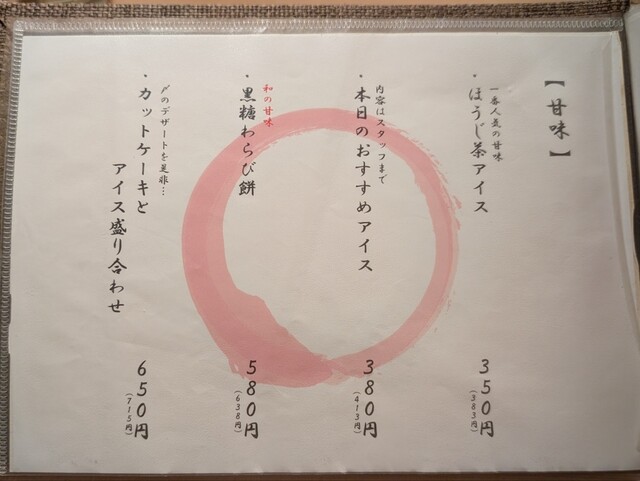 【甘味】
一番人気の甘味
・ほうじ茶アイス
350円
(383円)
内容はスタッフまで
・本日のおすすめアイス
380円
(413円)
和の甘味
・黒糖わらび餅
580円
(638円)
〆のデザートを是非…
・カットケーキと
アイス盛り合わせ
650円
(715円)